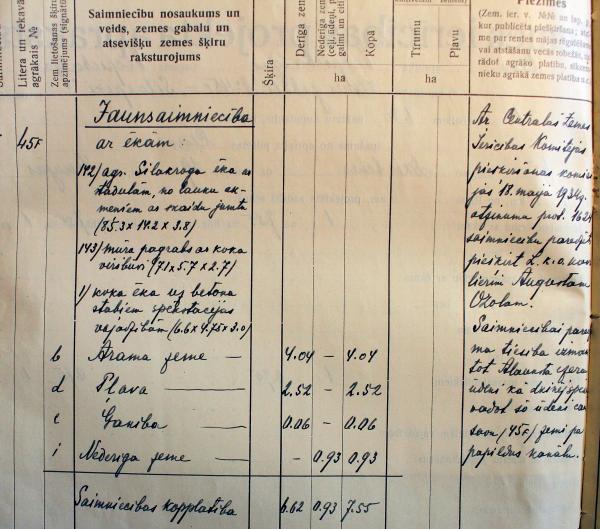 Litera un iekavās
agrākais №
Zem lietošanas šķiru
apzīmējums (signatūra
Saimniecību nosaukums un
veids, zemes gabalu un
atsevišķu zemes šķiru
raksturojums
Šķira
Derīga zeme
Nederīga zeme
(ceļi, ūdeņi, p
galmi un citi
Kopā
ha
Tīrumu
Pļavu
ha
Piezīmes
(Zem. ier. v. №№ un lap. p
kur publicēta piešķiršana; at
me par rentes mājas
vai atstāšanu vecās robežās,
rādot agrāko platību,
nieku agrākā zemes platība u.c.
45F
Jaunsaimniecība
ar ēkām
142) agr. Silakroga ēka ar
stadulām, no lauku ak-
meņiem ar skaidu jumtu
(85.3 x 14.2 x 3.8)
143) mūra pagrabs ar koka
virsbūvi (7.1 x 5.7 x 2.7)
1) koka ēka uz betona
stabiem spēkstacijas
vajadzībām (6.6 x 4.75 x 3.0)
b Arama zeme — 4.04 — 4.04
d Pļava — 2.52 — 2.52
Ganība — 0.06 — 0.06
i Nederīga zeme — - 0.93 0.93
Saimniecības kopplatība 6.62 0.93 7.55
Ar Centrālās Zemes
Ierīcības Komitejas
piešķiršanas komisi-
jas 18. maijā 1934 g.
atzinuma prot. 1624
saimniecību paredzēts
piešķirt L.k.o. kava-
lierim Augustam
Ozolam.
Saimniecībai
ma tiesība izman-
tot ezera
ūdeni kā dzinējspēku
vadot šo ūdeni caur
savu (45F) zemi pa
papildus kanālu.